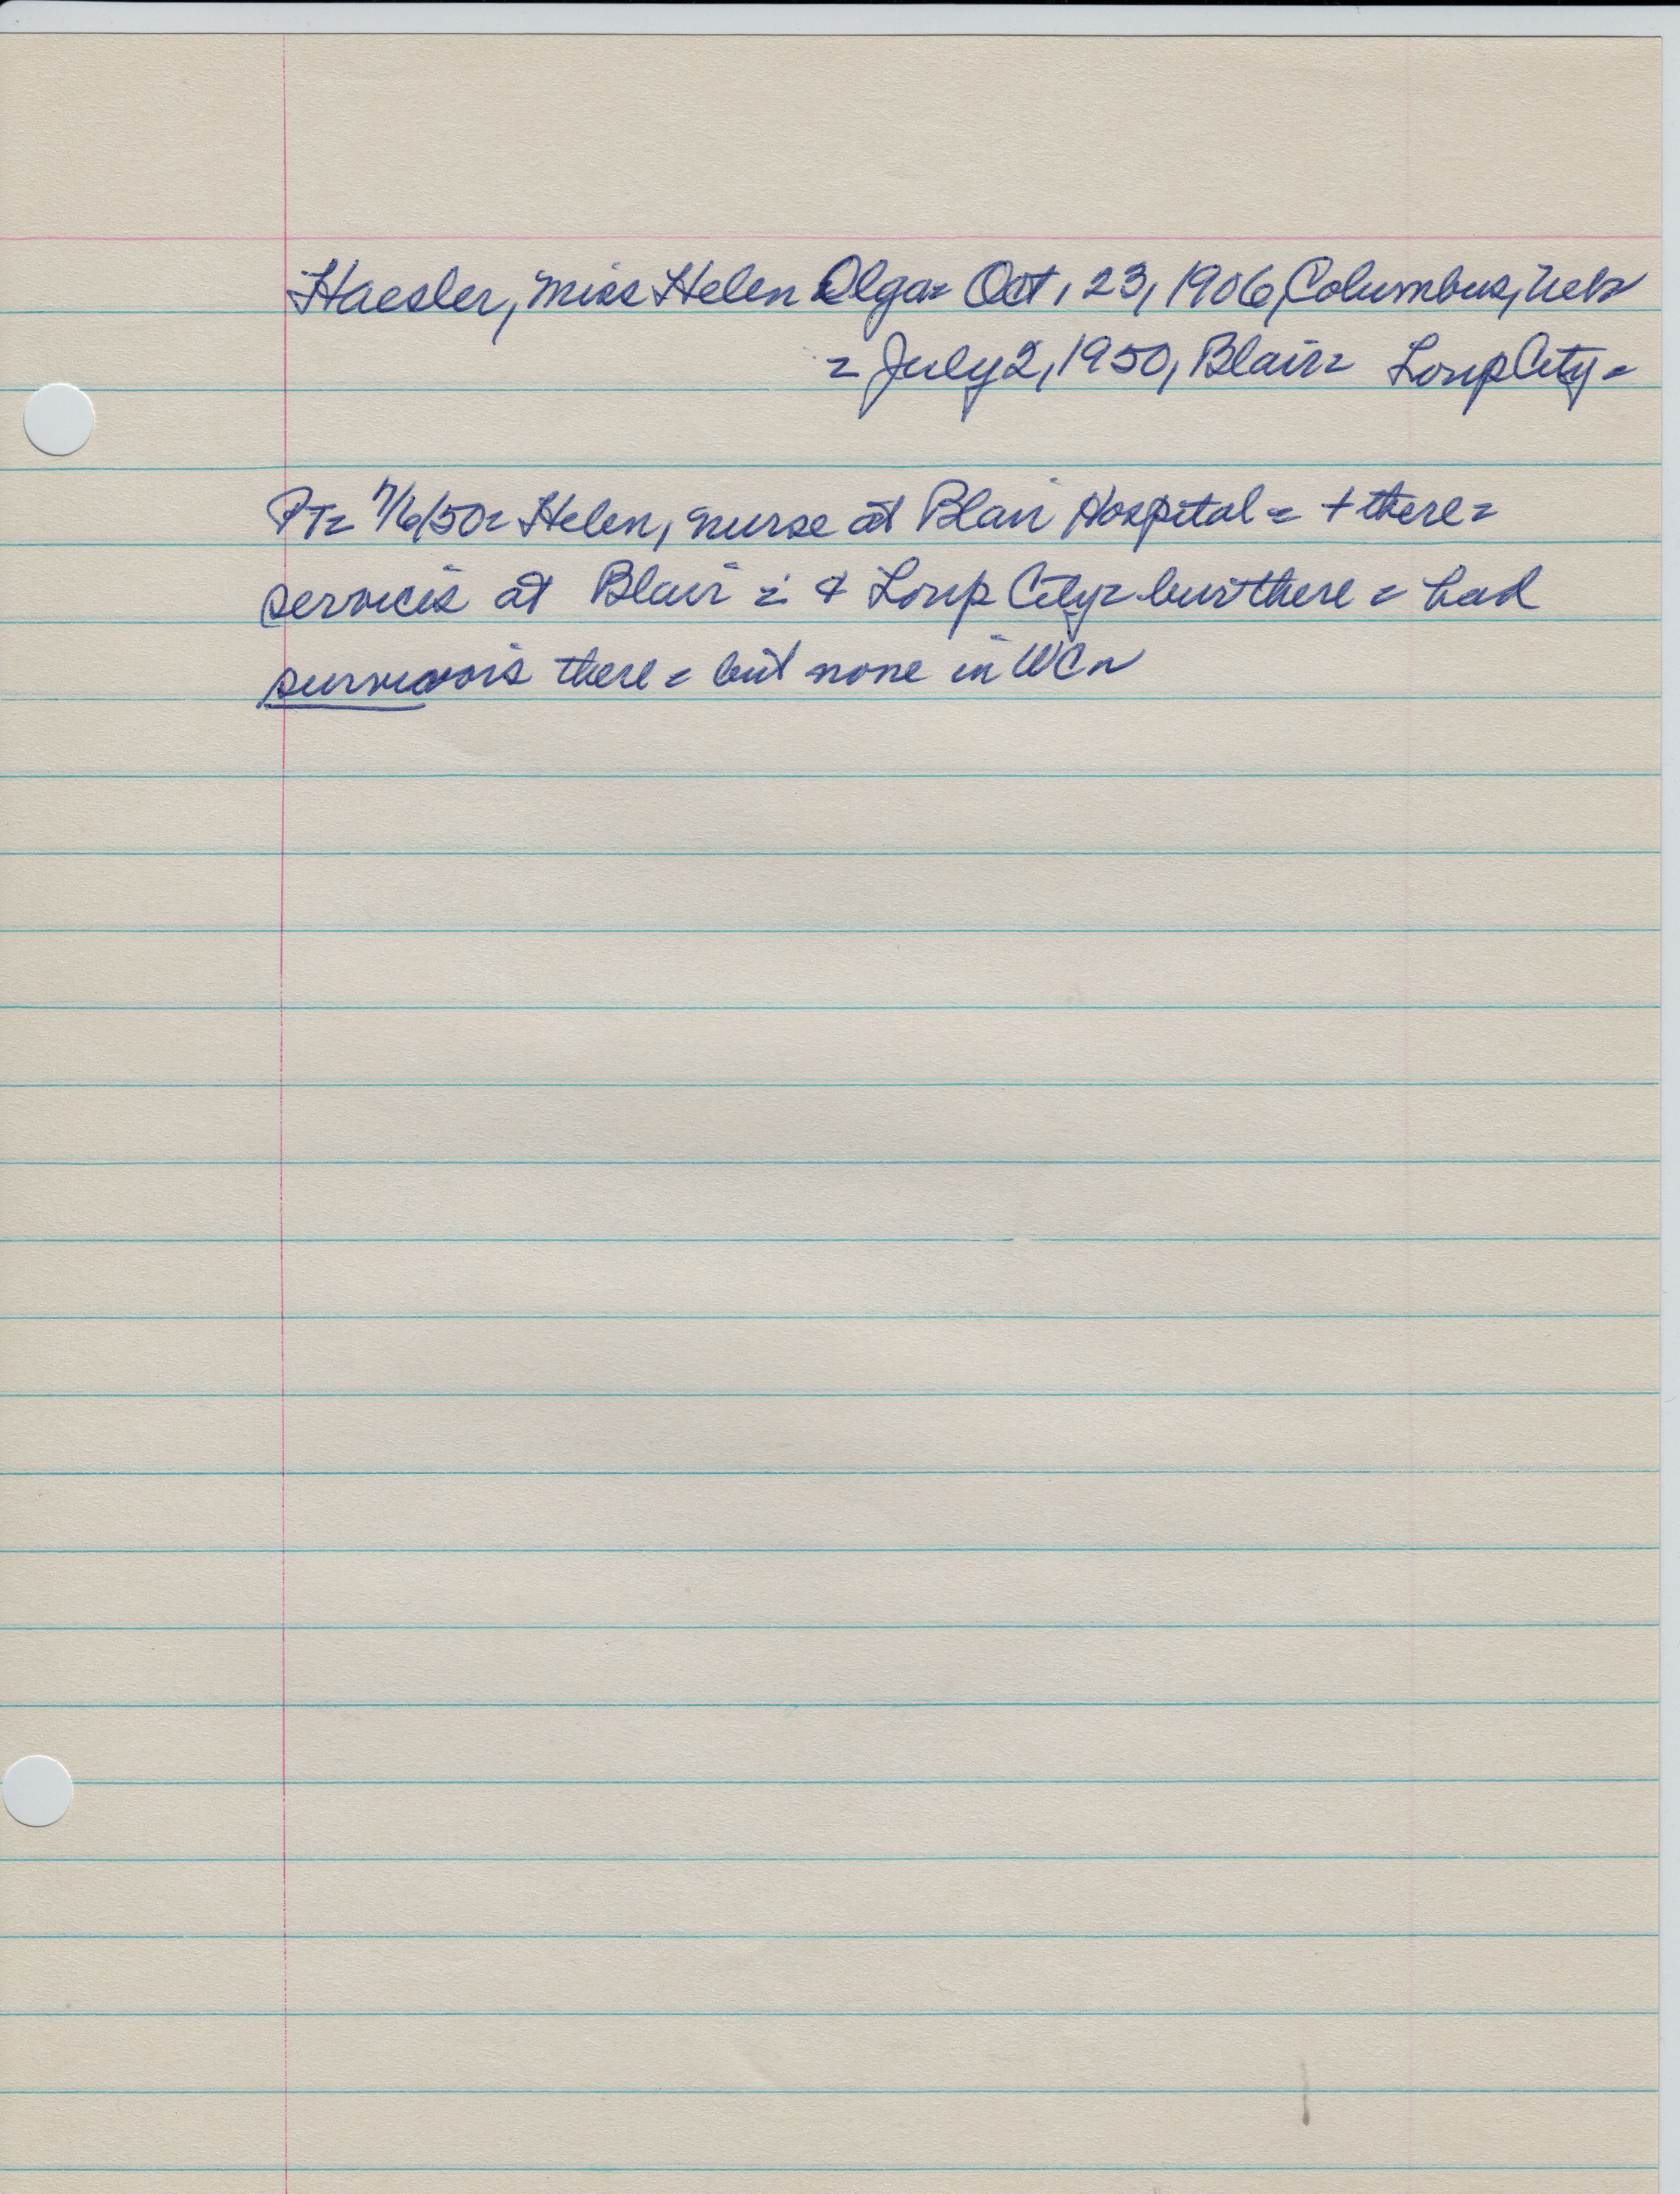 Haesler, Miss Helen Olga= Oct, 23, 1906, Columbus, Neb
= July 2, 1950, Blair= Loup City=
PT= 7/6/50= Helen, nurse at Blair Hospital = + there=
services at Blair = & Loup City= bur there = had
survivors there = but none in WC